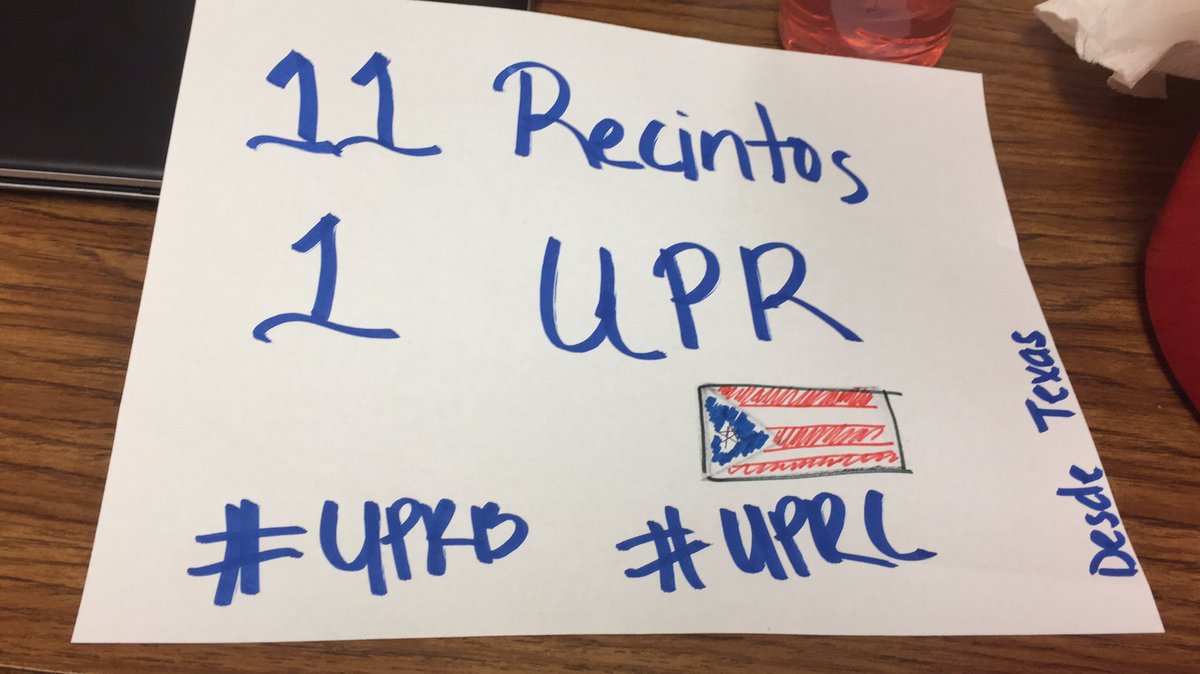 11 Recintos
1 UPR
#UPRB #UPRC
Desde Texas